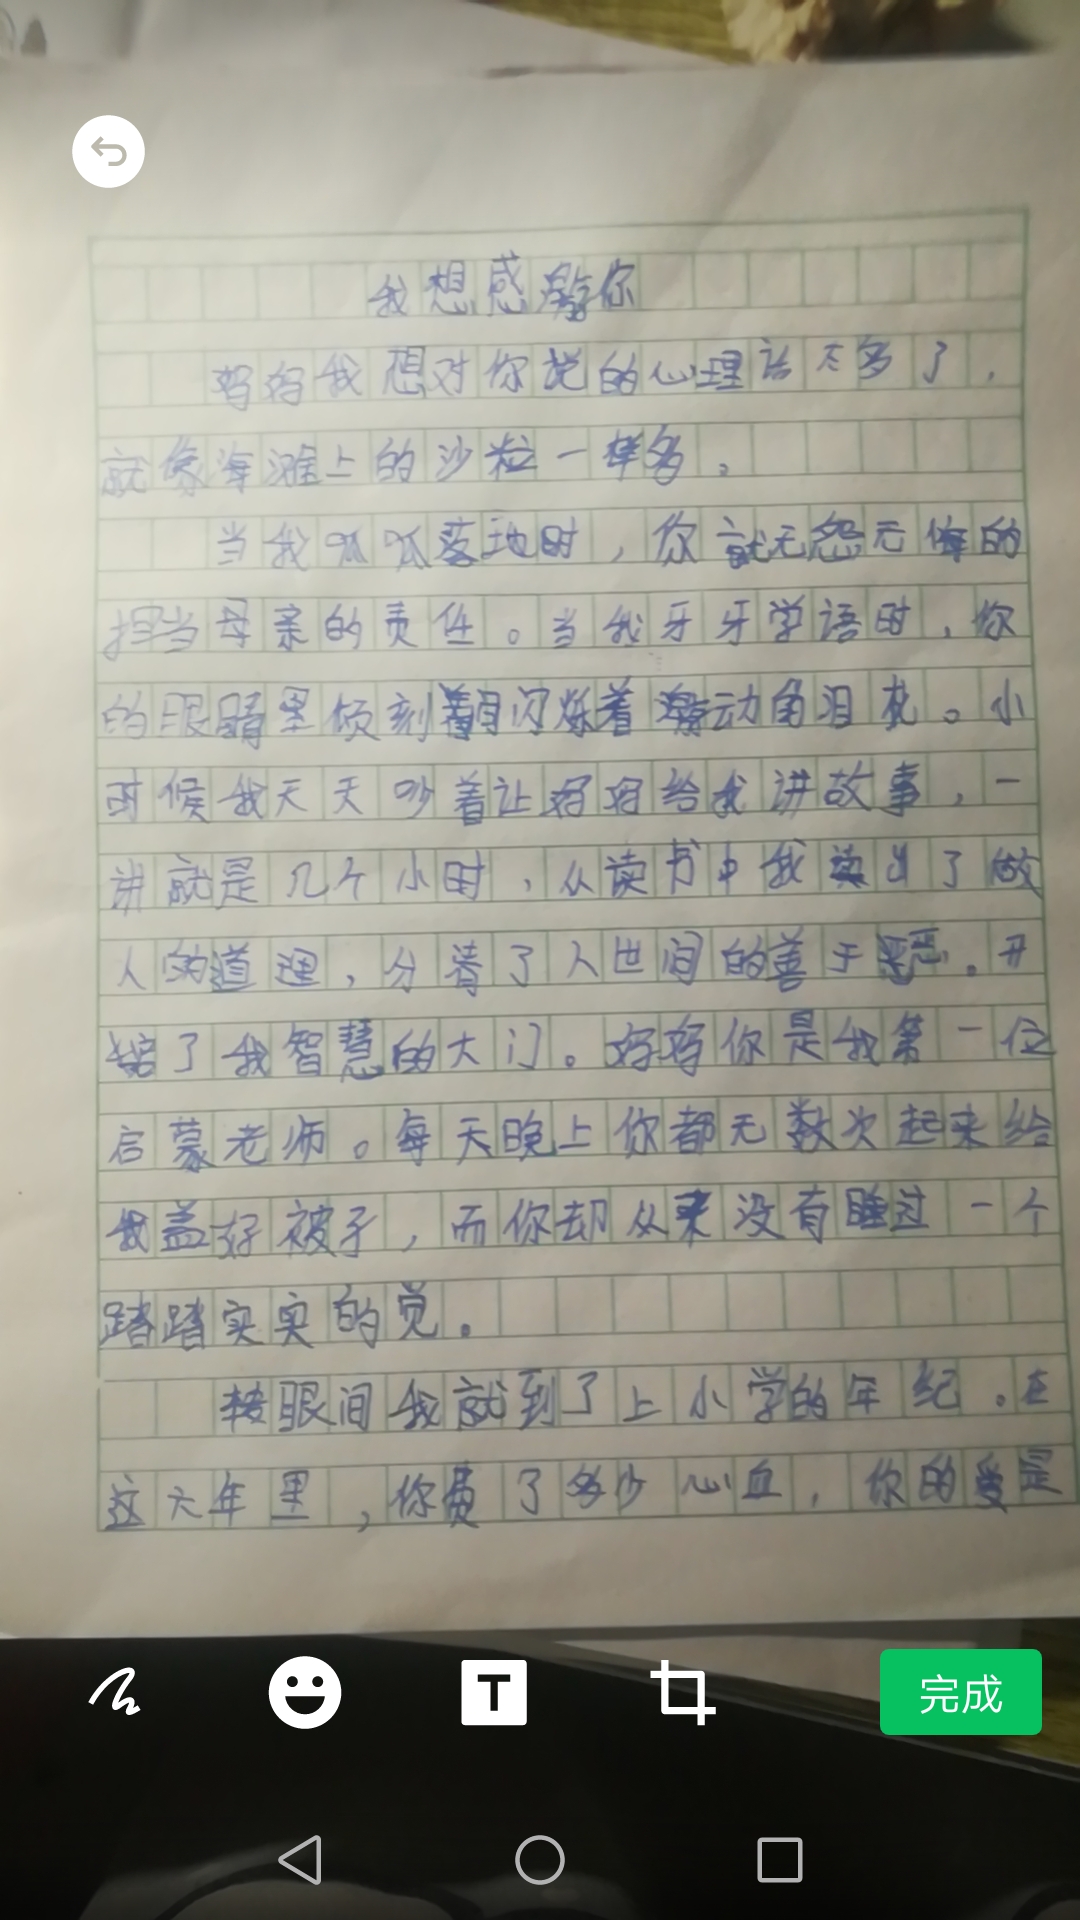 我想感激你
妈妈我想对你说的心理话太多了，
就像海滩上的沙粒一样多。
当我呱呱落地时，你就无怨无悔的
担当母亲的责任。当我牙牙学语时，你
的眼睛里倾刻间闪烁着激动的泪花。小
时候我天天吵着让妈妈给我讲故事，一
讲就是几个小时，从读书中我读出了做
人的道理，分清了人世间的善于恶。开
启了我智慧的大门。妈妈你是我第一位
启蒙老师。每天晚上你都无数次起来给
我盖好被子，而你却从来没有睡过一个
踏踏实实的觉。
转眼间我就到了上小学的年纪。在
这六年里，你费了多少心血，你的爱是
完成